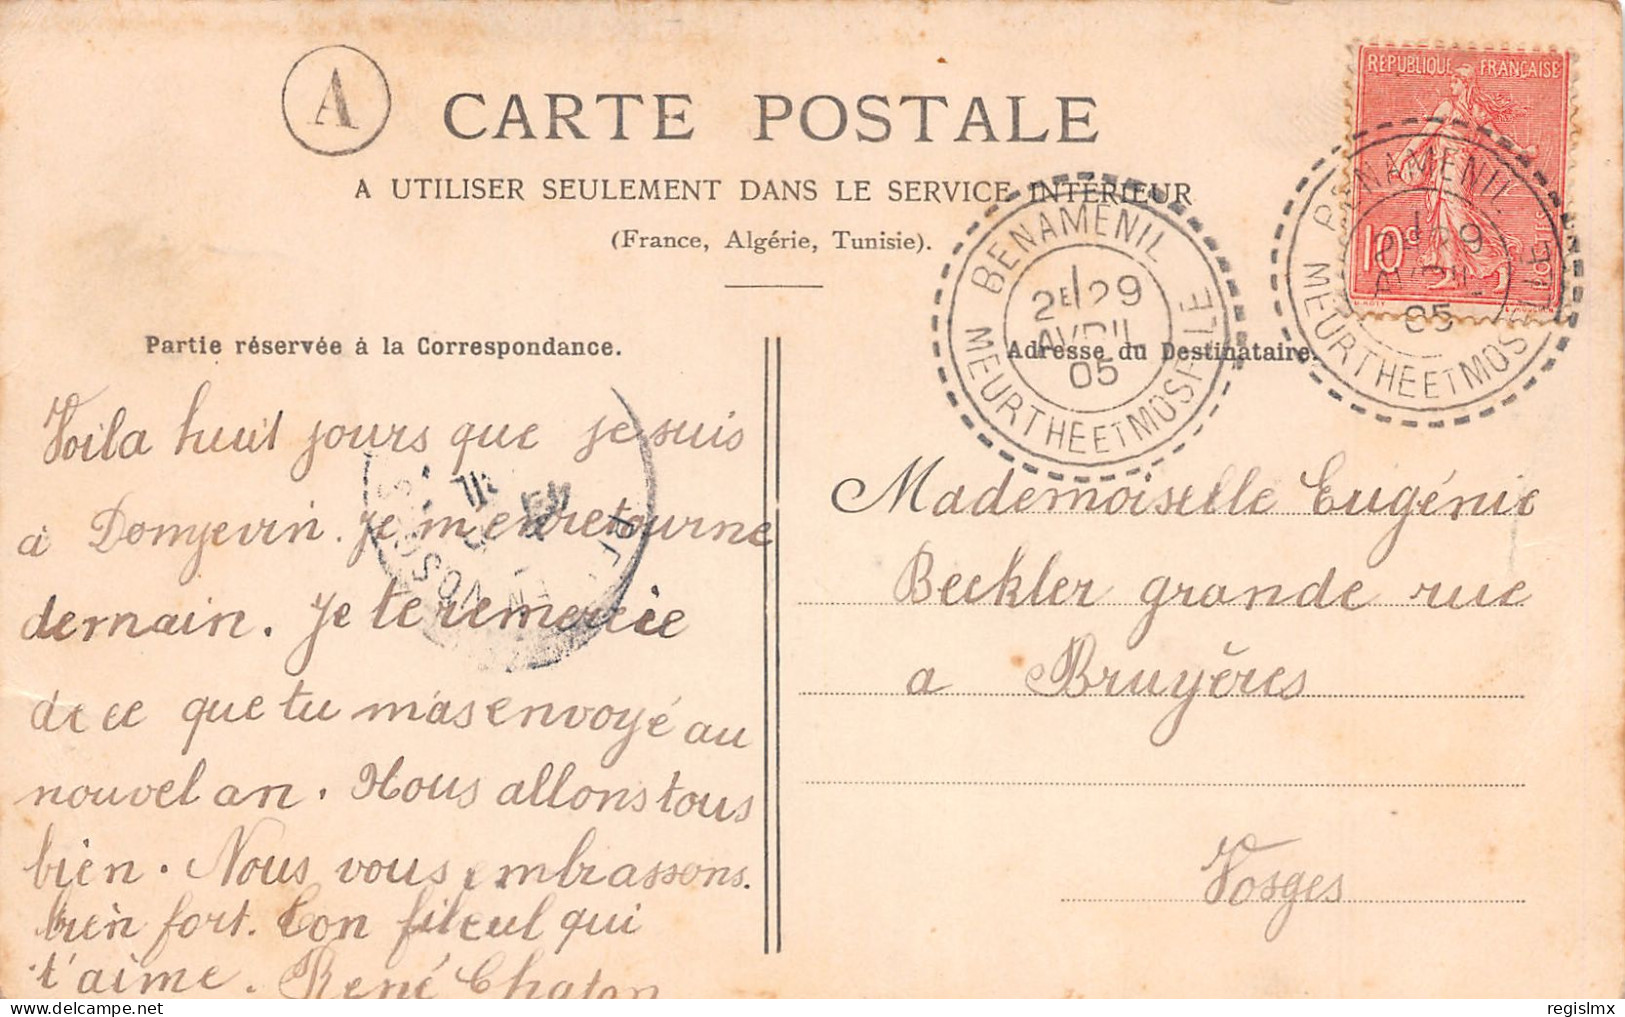 A
CARTE POSTALE
A UTILISER SEULEMENT DANS LE SERVICE INTÉRIEUR
(France, Algérie, Tunisie).
REPUBLIQUE FRANÇAISE
10c
POSTES
BENAMENIL
2E/29
AVRIL
05
MEURTHE ET MOSELLE
BENAMENIL
2E/29
AVRIL
05
MEURTHE ET MOSELLE
Partie réservée à la Correspondance.
Voila huit jours que je suis
à Domjevin. Je m'en retourne
demain. Je te remercie
de ce que tu m'as envoyé au
nouvel an. Nous allons tous
bien. Nous vous embrassons.
bien fort. Ton filleul qui
t'aime. René Chaton
Adresse du Destinataire.
Mademoiselle Eugénie
Beckler grande rue
a Bruyères
Vosges
regislmx